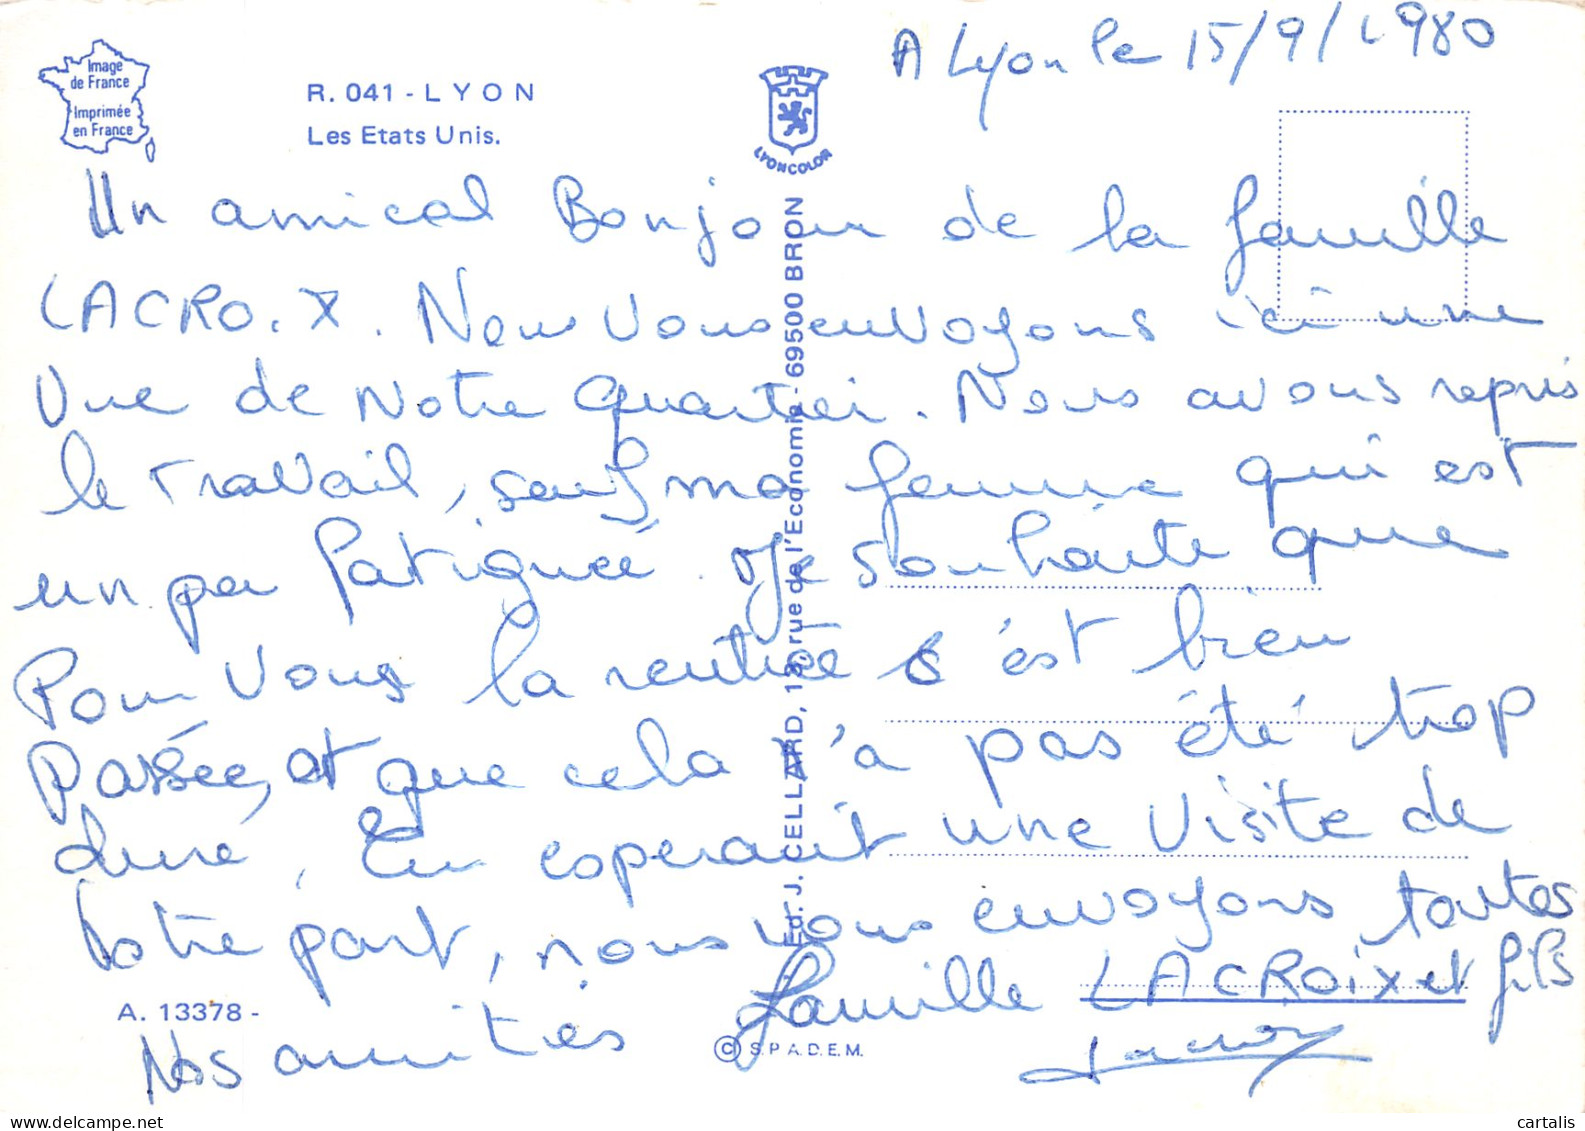 A Lyon le 15/9/1980
Image
de France
Imprimée
en France
R. 041 - LYON
Les Etats Unis.
LYONCOLOR
Un amical Bonjour de la famille
LACROIX. Nous vous envoyons ici une
Vue de Notre Quartier. Nous avons repris
le travail, sauf ma femme qui est
un peu fatiguée. Je souhaite que
Pour Vous la rentrée s'est bien
Passée, et que cela n'a pas été trop
dure, En esperant une Visite de
Votre part, nous vous envoyons toutes
Nos amitiés famille LACROIX et fils
Lacroix
Ed. J. CELLARD, 13, rue de l'Economie - 69500 BRON
A. 13378 -
© S.P.A.D.E.M.
www.delcampe.net
cartalis